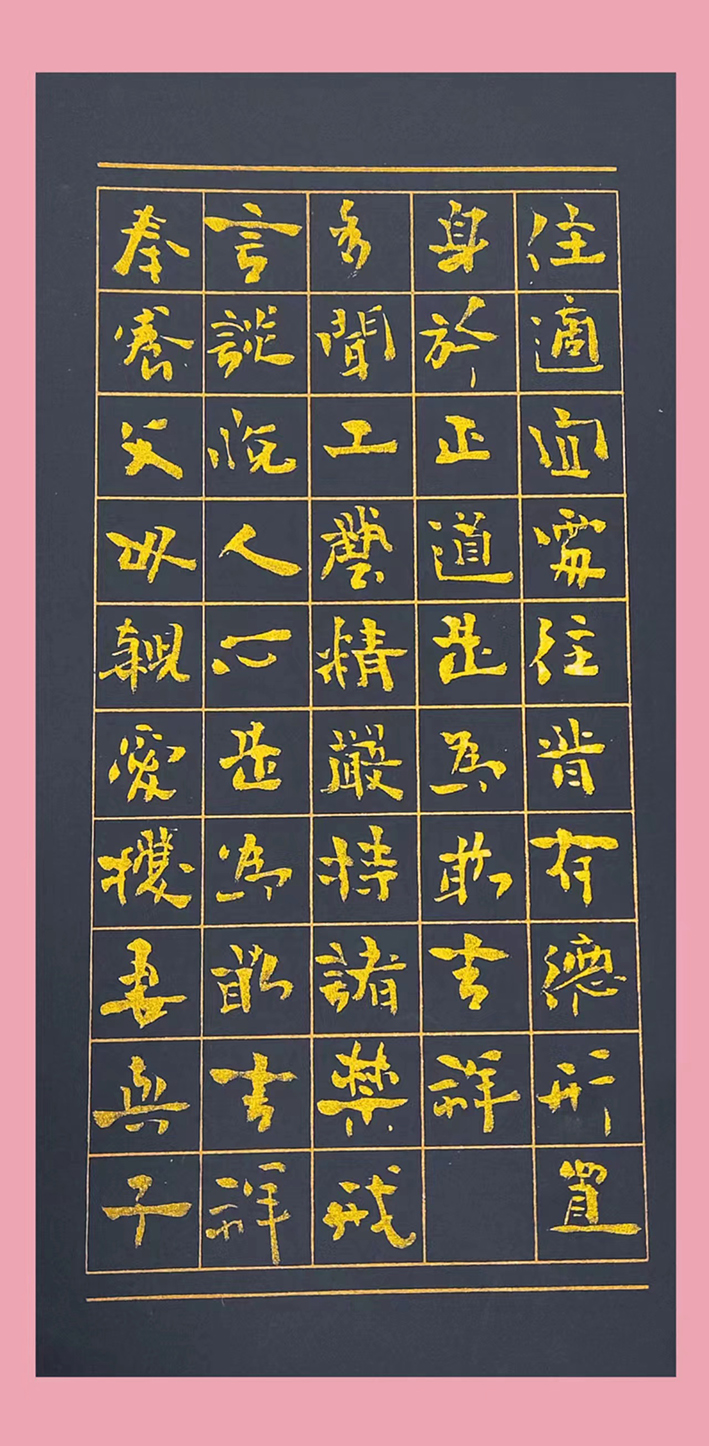 住適宜處往昔有德行置
身於正道是為最吉祥
多聞工藝精嚴持諸禁戒
言談悅人心是為最吉祥
奉養父母親愛護妻與子